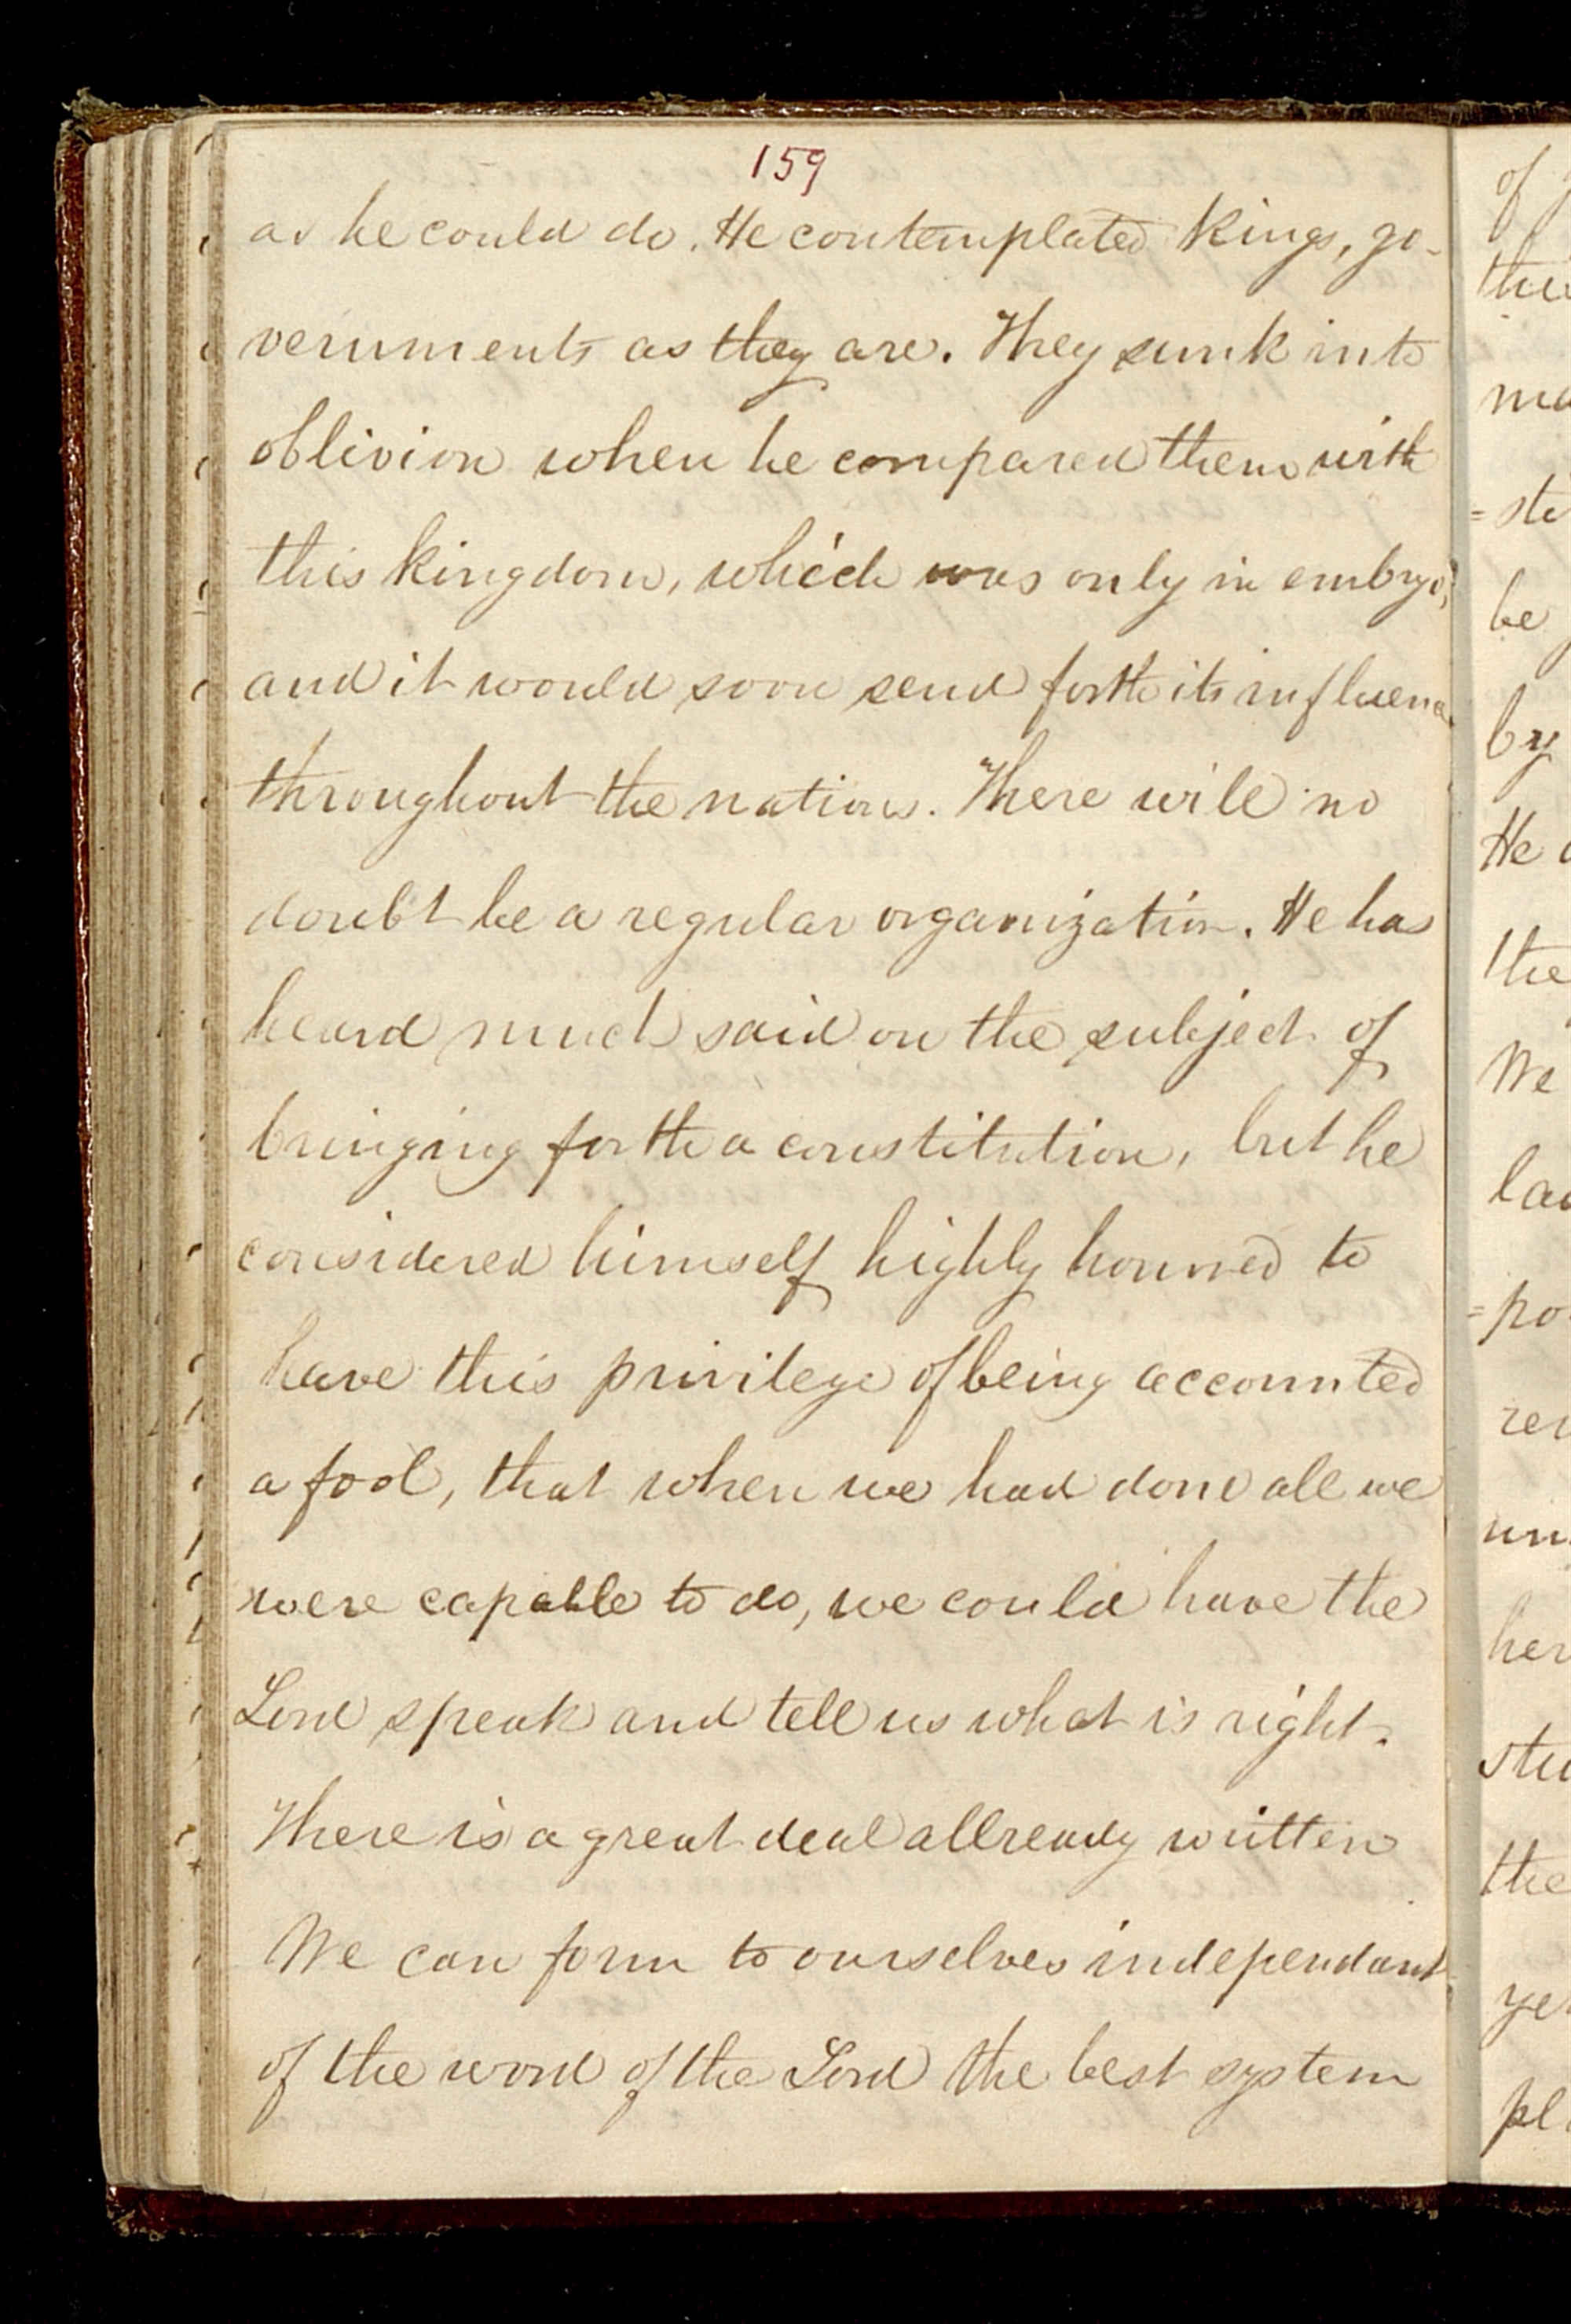 159
as he could do. He contemplated Kings, go-
vernments as they are. They sunk into
oblivion when he compared them with
this kingdom, which was only in embryo,
and it would soon send forth its influence
throughout the nations. There will no
doubt be a regular organization. He has
heard much said on the subject of
bringing forth a constitution, but he
considered himself highly honored to
have this privilege of being accounted
a fool, that when we had done all we
were capable to do, we could have the
Lord speak and tell us what is right.
There is a great deal allready written
We can form to ourselves independant
of the word of the Lord the best system
of
the
ma
=ste
be
by
He
the
We
la
=po
rei
un
her
stu
the
ye
pl